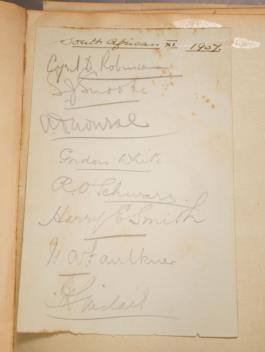 South African XI. 1907.
Cyril D. Robinson
S J Snooke
A D Nourse
Gordon White
R O Schwarz
Harry E Smith
G A Faulkner